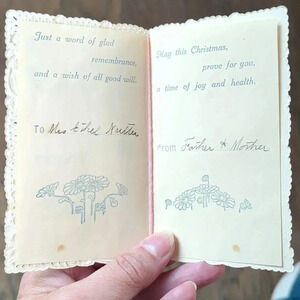 Just a word of glad
remembrance,
and a wish of all good will.
To Mrs Ethel
May this Christmas,
prove for you,
a time of joy and health.
From Father & Mother